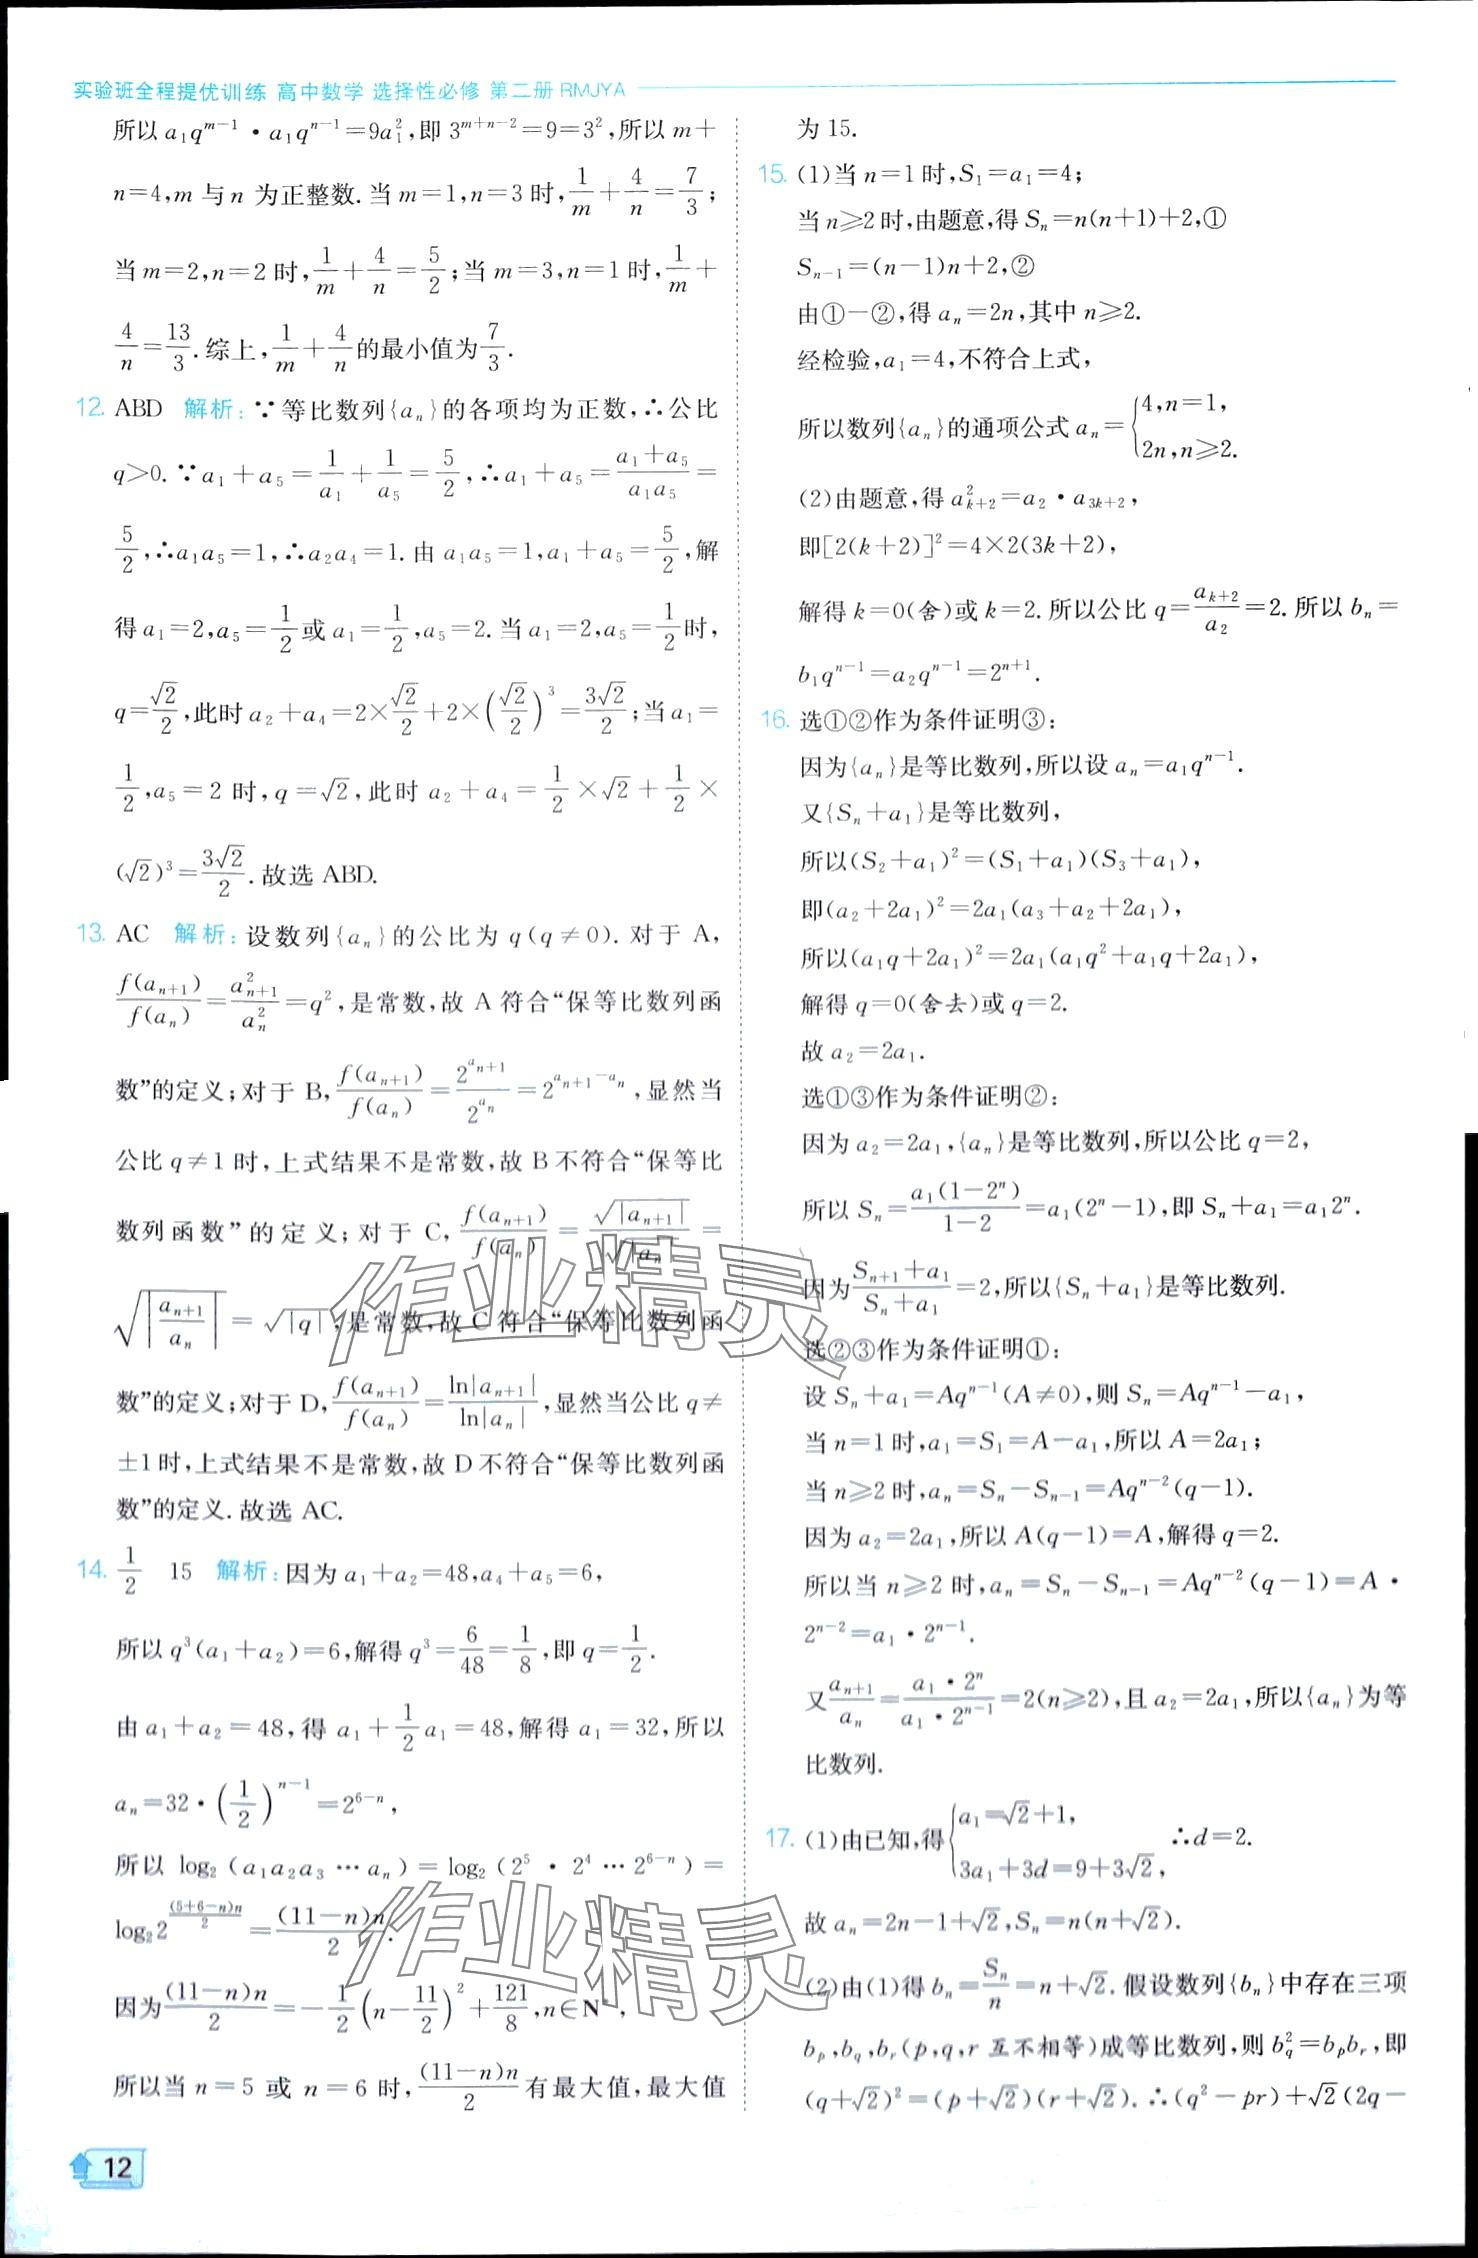 实验班全程提优训练 高中数学 选择性必修 第二册 RMJYA
所以 a₁qᵐ⁻¹·a₁qⁿ⁻¹=9a₁²,即 3ᵐ⁺ⁿ⁻²=9=3²,所以 m+
n=4,m 与 n 为正整数.当 m=1,n=3 时,1/m+4/n=7/3;
当 m=2,n=2 时,1/m+4/n=5/2;当 m=3,n=1 时,1/m+
4/n=13/3.综上,1/m+4/n的最小值为7/3.
12. ABD 解析:∵等比数列{aₙ}的各项均为正数,∴公比
q>0.∵a₁+a₅=1/a₁+1/a₅=5/2,∴a₁+a₅=(a₁+a₅)/(a₁a₅)=
5/2,∴a₁a₅=1,∴a₂a₄=1.由 a₁a₅=1,a₁+a₅=5/2,解
得 a₁=2,a₅=1/2或 a₁=1/2,a₅=2.当 a₁=2,a₅=1/2时,
q=√2/2,此时 a₂+a₄=2×√2/2+2×(√2/2)³=3√2/2;当 a₁=
1/2,a₅=2 时,q=√2,此时 a₂+a₄=1/2×√2+1/2×
(√2)³=3√2/2.故选 ABD.
13. AC 解析:设数列{aₙ}的公比为 q(q≠0).对于 A,
f(aₙ₊₁)/f(aₙ)=aₙ₊₁²/aₙ²=q²,是常数,故 A 符合“保等比数列函
数”的定义;对于 B,f(aₙ₊₁)/f(aₙ)=2^(aₙ₊₁)/2^(aₙ)=2^(aₙ₊₁−aₙ),显然当
公比 q≠1 时,上式结果不是常数,故 B 不符合“保等比
数列函数”的定义;对于 C,f(aₙ₊₁)/f(aₙ)=√|aₙ₊₁|/√|aₙ|=
√|aₙ₊₁/aₙ|=√|q|,是常数,故 C 符合“保等比数列函
数”的定义;对于 D,f(aₙ₊₁)/f(aₙ)=ln|aₙ₊₁|/ln|aₙ|,显然当公比 q≠
±1 时,上式结果不是常数,故 D 不符合“保等比数列函
数”的定义.故选 AC.
14. 1/2 15 解析:因为 a₁+a₂=48,a₄+a₅=6,
所以 q³(a₁+a₂)=6,解得 q³=6/48=1/8,即 q=1/2.
由 a₁+a₂=48,得 a₁+1/2 a₁=48,解得 a₁=32,所以
aₙ=32·(1/2)ⁿ⁻¹=2⁶⁻ⁿ,
所以 log₂(a₁a₂a₃…aₙ)=log₂(2⁵·2⁴…2⁶⁻ⁿ)=
log₂2^((5+6−n)n/2)=(11−n)n/2.
因为(11−n)n/2=−1/2(n−11/2)²+121/8,n∈N*,
所以当 n=5 或 n=6 时,(11−n)n/2有最大值,最大值
为 15.
15. (1)当 n=1 时,S₁=a₁=4;
当 n≥2 时,由题意,得 Sₙ=n(n+1)+2,①
Sₙ₋₁=(n−1)n+2,②
由①−②,得 aₙ=2n,其中 n≥2.
经检验,a₁=4,不符合上式,
所以数列{aₙ}的通项公式 aₙ={4,n=1,
2n,n≥2.
(2)由题意,得 aₖ₊₂²=a₂·a₃ₖ₊₂,
即[2(k+2)]²=4×2(3k+2),
解得 k=0(舍)或 k=2.所以公比 q=aₖ₊₂/a₂=2.所以 bₙ=
b₁qⁿ⁻¹=a₂qⁿ⁻¹=2ⁿ⁺¹.
16. 选①②作为条件证明③:
因为{aₙ}是等比数列,所以设 aₙ=a₁qⁿ⁻¹.
又{Sₙ+a₁}是等比数列,
所以(S₂+a₁)²=(S₁+a₁)(S₃+a₁),
即(a₂+2a₁)²=2a₁(a₃+a₂+2a₁),
所以(a₁q+2a₁)²=2a₁(a₁q²+a₁q+2a₁),
解得 q=0(舍去)或 q=2.
故 a₂=2a₁.
选①③作为条件证明②:
因为 a₂=2a₁,{aₙ}是等比数列,所以公比 q=2,
所以 Sₙ=a₁(1−2ⁿ)/(1−2)=a₁(2ⁿ−1),即 Sₙ+a₁=a₁2ⁿ.
因为(Sₙ₊₁+a₁)/(Sₙ+a₁)=2,所以{Sₙ+a₁}是等比数列.
选②③作为条件证明①:
设 Sₙ+a₁=Aqⁿ⁻¹(A≠0),则 Sₙ=Aqⁿ⁻¹−a₁,
当 n=1 时,a₁=S₁=A−a₁,所以 A=2a₁;
当 n≥2 时,aₙ=Sₙ−Sₙ₋₁=Aqⁿ⁻²(q−1).
因为 a₂=2a₁,所以 A(q−1)=A,解得 q=2.
所以当 n≥2 时,aₙ=Sₙ−Sₙ₋₁=Aqⁿ⁻²(q−1)=A·
2ⁿ⁻²=a₁·2ⁿ⁻¹.
又aₙ₊₁/aₙ=(a₁·2ⁿ)/(a₁·2ⁿ⁻¹)=2(n≥2),且 a₂=2a₁,所以{aₙ}为等
比数列.
17. (1)由已知,得{a₁=√2+1,
3a₁+3d=9+3√2, ∴d=2.
故 aₙ=2n−1+√2,Sₙ=n(n+√2).
(2)由(1)得 bₙ=Sₙ/n=n+√2.假设数列{bₙ}中存在三项
bₚ,b_q,bᵣ(p,q,r 互不相等)成等比数列,则 b_q²=bₚbᵣ,即
(q+√2)²=(p+√2)(r+√2).∴(q²−pr)+√2(2q−
12
作业精灵
作业精灵